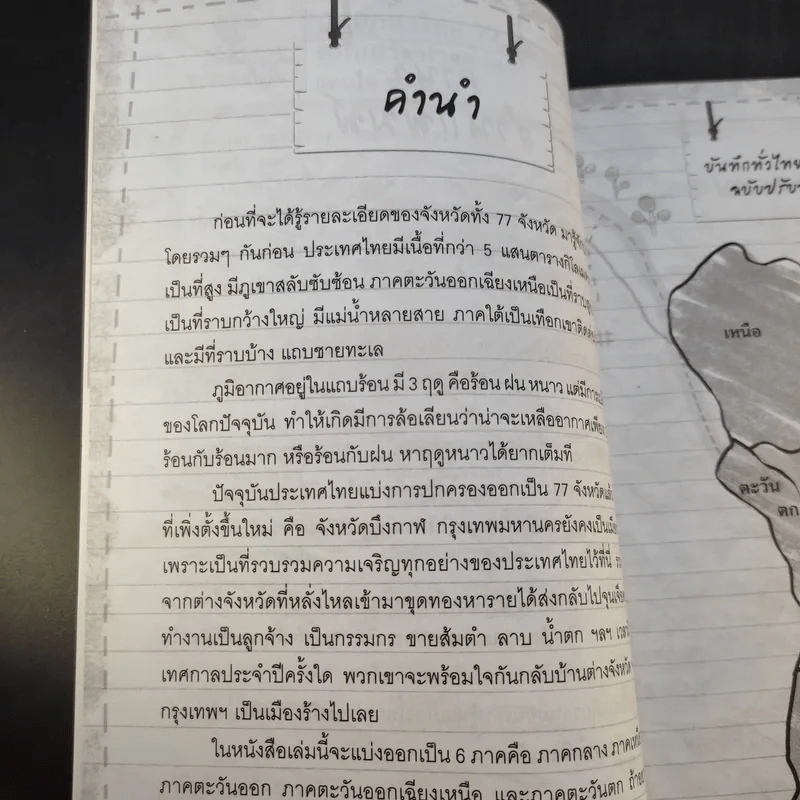 คำนำ
ก่อนที่จะได้รู้รายละเอียดของจังหวัดทั้ง 77 จังหวัด
โดยรวมๆ กันก่อน ประเทศไทยมีเนื้อที่กว่า 5 แสนตารางกิโลเมตร
เป็นที่สูง มีภูเขาสลับซับซ้อน ภาคตะวันออกเฉียงเหนือเป็นที่ราบสูง
เป็นที่ราบกว้างใหญ่ มีแม่น้ำหลายสาย ภาคใต้เป็นเทือกเขา
และมีที่ราบบ้าง แถบชายทะเล
ภูมิอากาศอยู่ในแถบร้อน มี 3 ฤดู คือร้อน ฝน หนาว แต่มี
ของโลกปัจจุบัน ทำให้เกิดมีการล้อเลียนว่าน่าจะเหลืออากาศเพียง
ร้อนกับร้อนมาก หรือร้อนกับฝน หาฤดูหนาวได้ยากเต็มที
ปัจจุบันประเทศไทยแบ่งการปกครองออกเป็น 77 จังหวัด
ที่เพิ่งตั้งขึ้นใหม่ คือ จังหวัดบึงกาฬ กรุงเทพมหานครยังคงเป็น
เพราะเป็นที่รวบรวมความเจริญทุกอย่างของประเทศไทยไว้ที่นี่
จากต่างจังหวัดที่หลั่งไหลเข้ามาขุดทองหารายได้ส่งกลับไป
ทำงานเป็นลูกจ้าง เป็นกรรมกร ขายส้มตำ ลาบ น้ำตก ฯลฯ
เทศกาลประจำปีครั้งใด พวกเขาจะพร้อมใจกันกลับบ้านต่างจังหวัด
กรุงเทพฯ เป็นเมืองร้างไปเลย
ในหนังสือเล่มนี้จะแบ่งออกเป็น 6 ภาคคือ ภาคกลาง ภาคเหนือ
ภาคตะวันออก ภาคตะวันออกเฉียงเหนือ และภาคตะวันตก
บันทึกทั่วไทย
ฉบับปรับ
เหนือ
ตะวัน
ตก